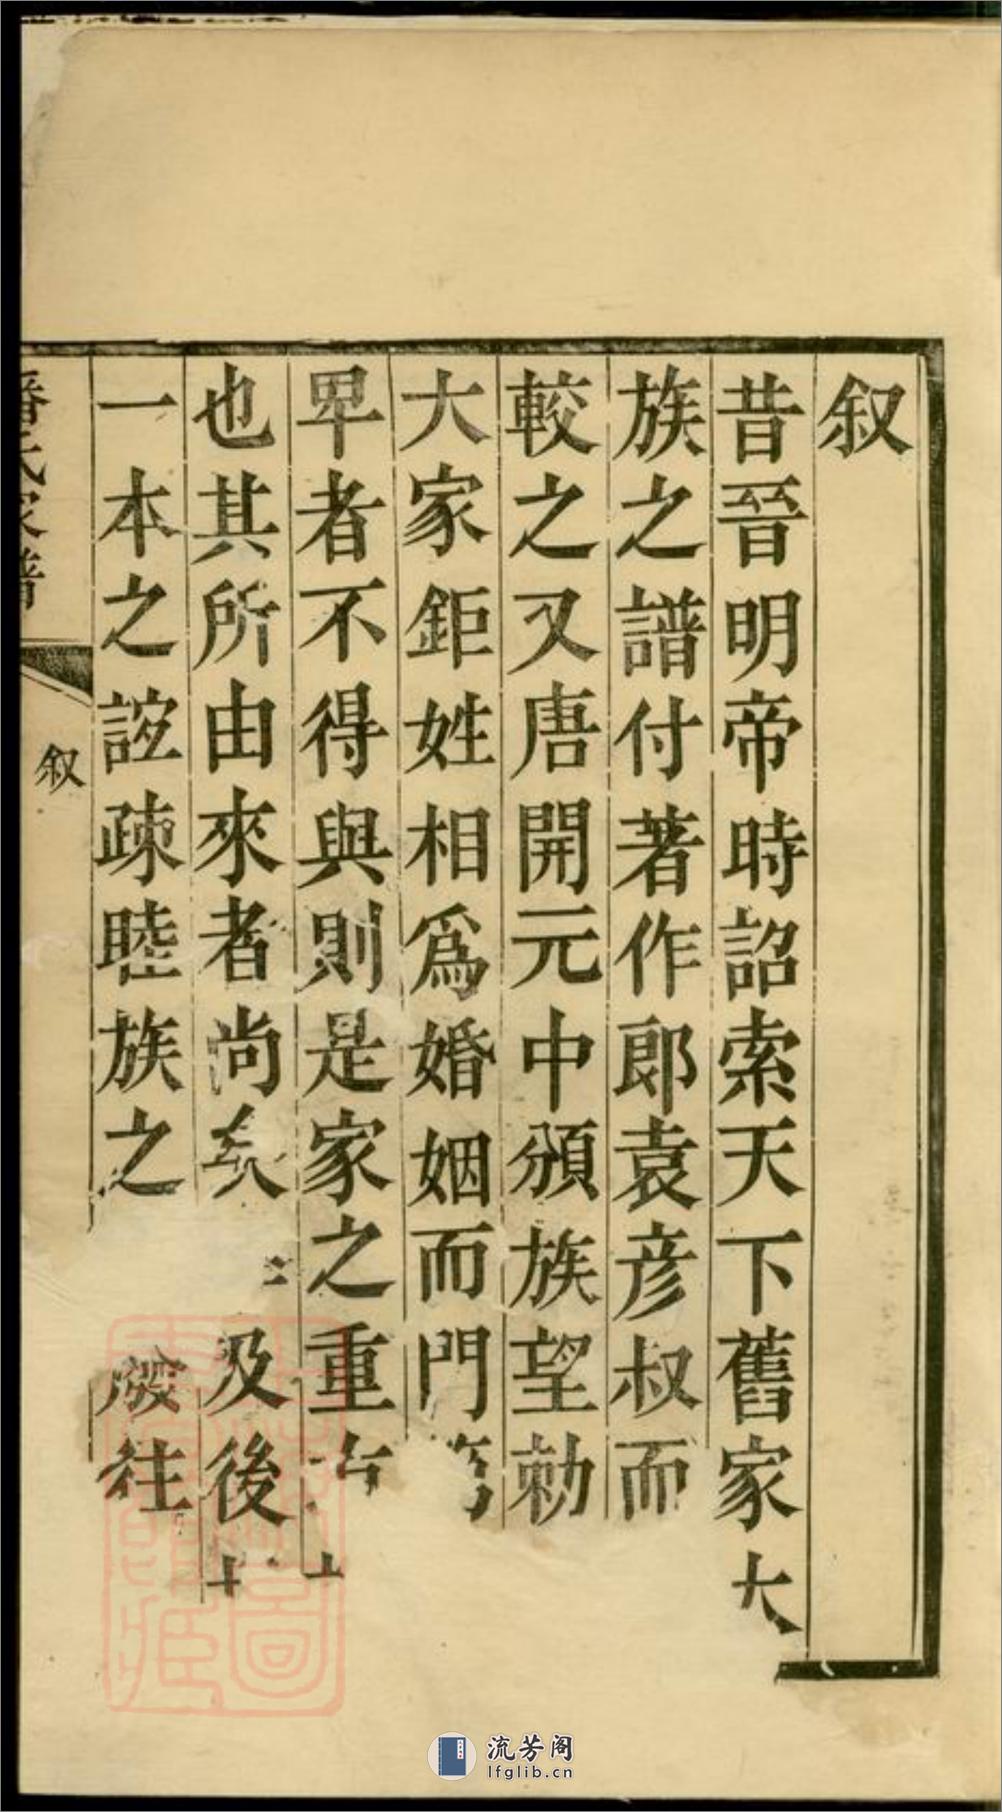 叙
昔晉明帝時詔索天下舊家大
族之譜付著作郎袁彦叔而
較之又唐開元中頒族望勅
大家鉅姓相爲婚姻而門
卑者不得與則是家之重
也其所由來者尚矣及後
一本之誼疎睦族之廢往
潘氏家譜
叙
流芳阁
lfglib.cn